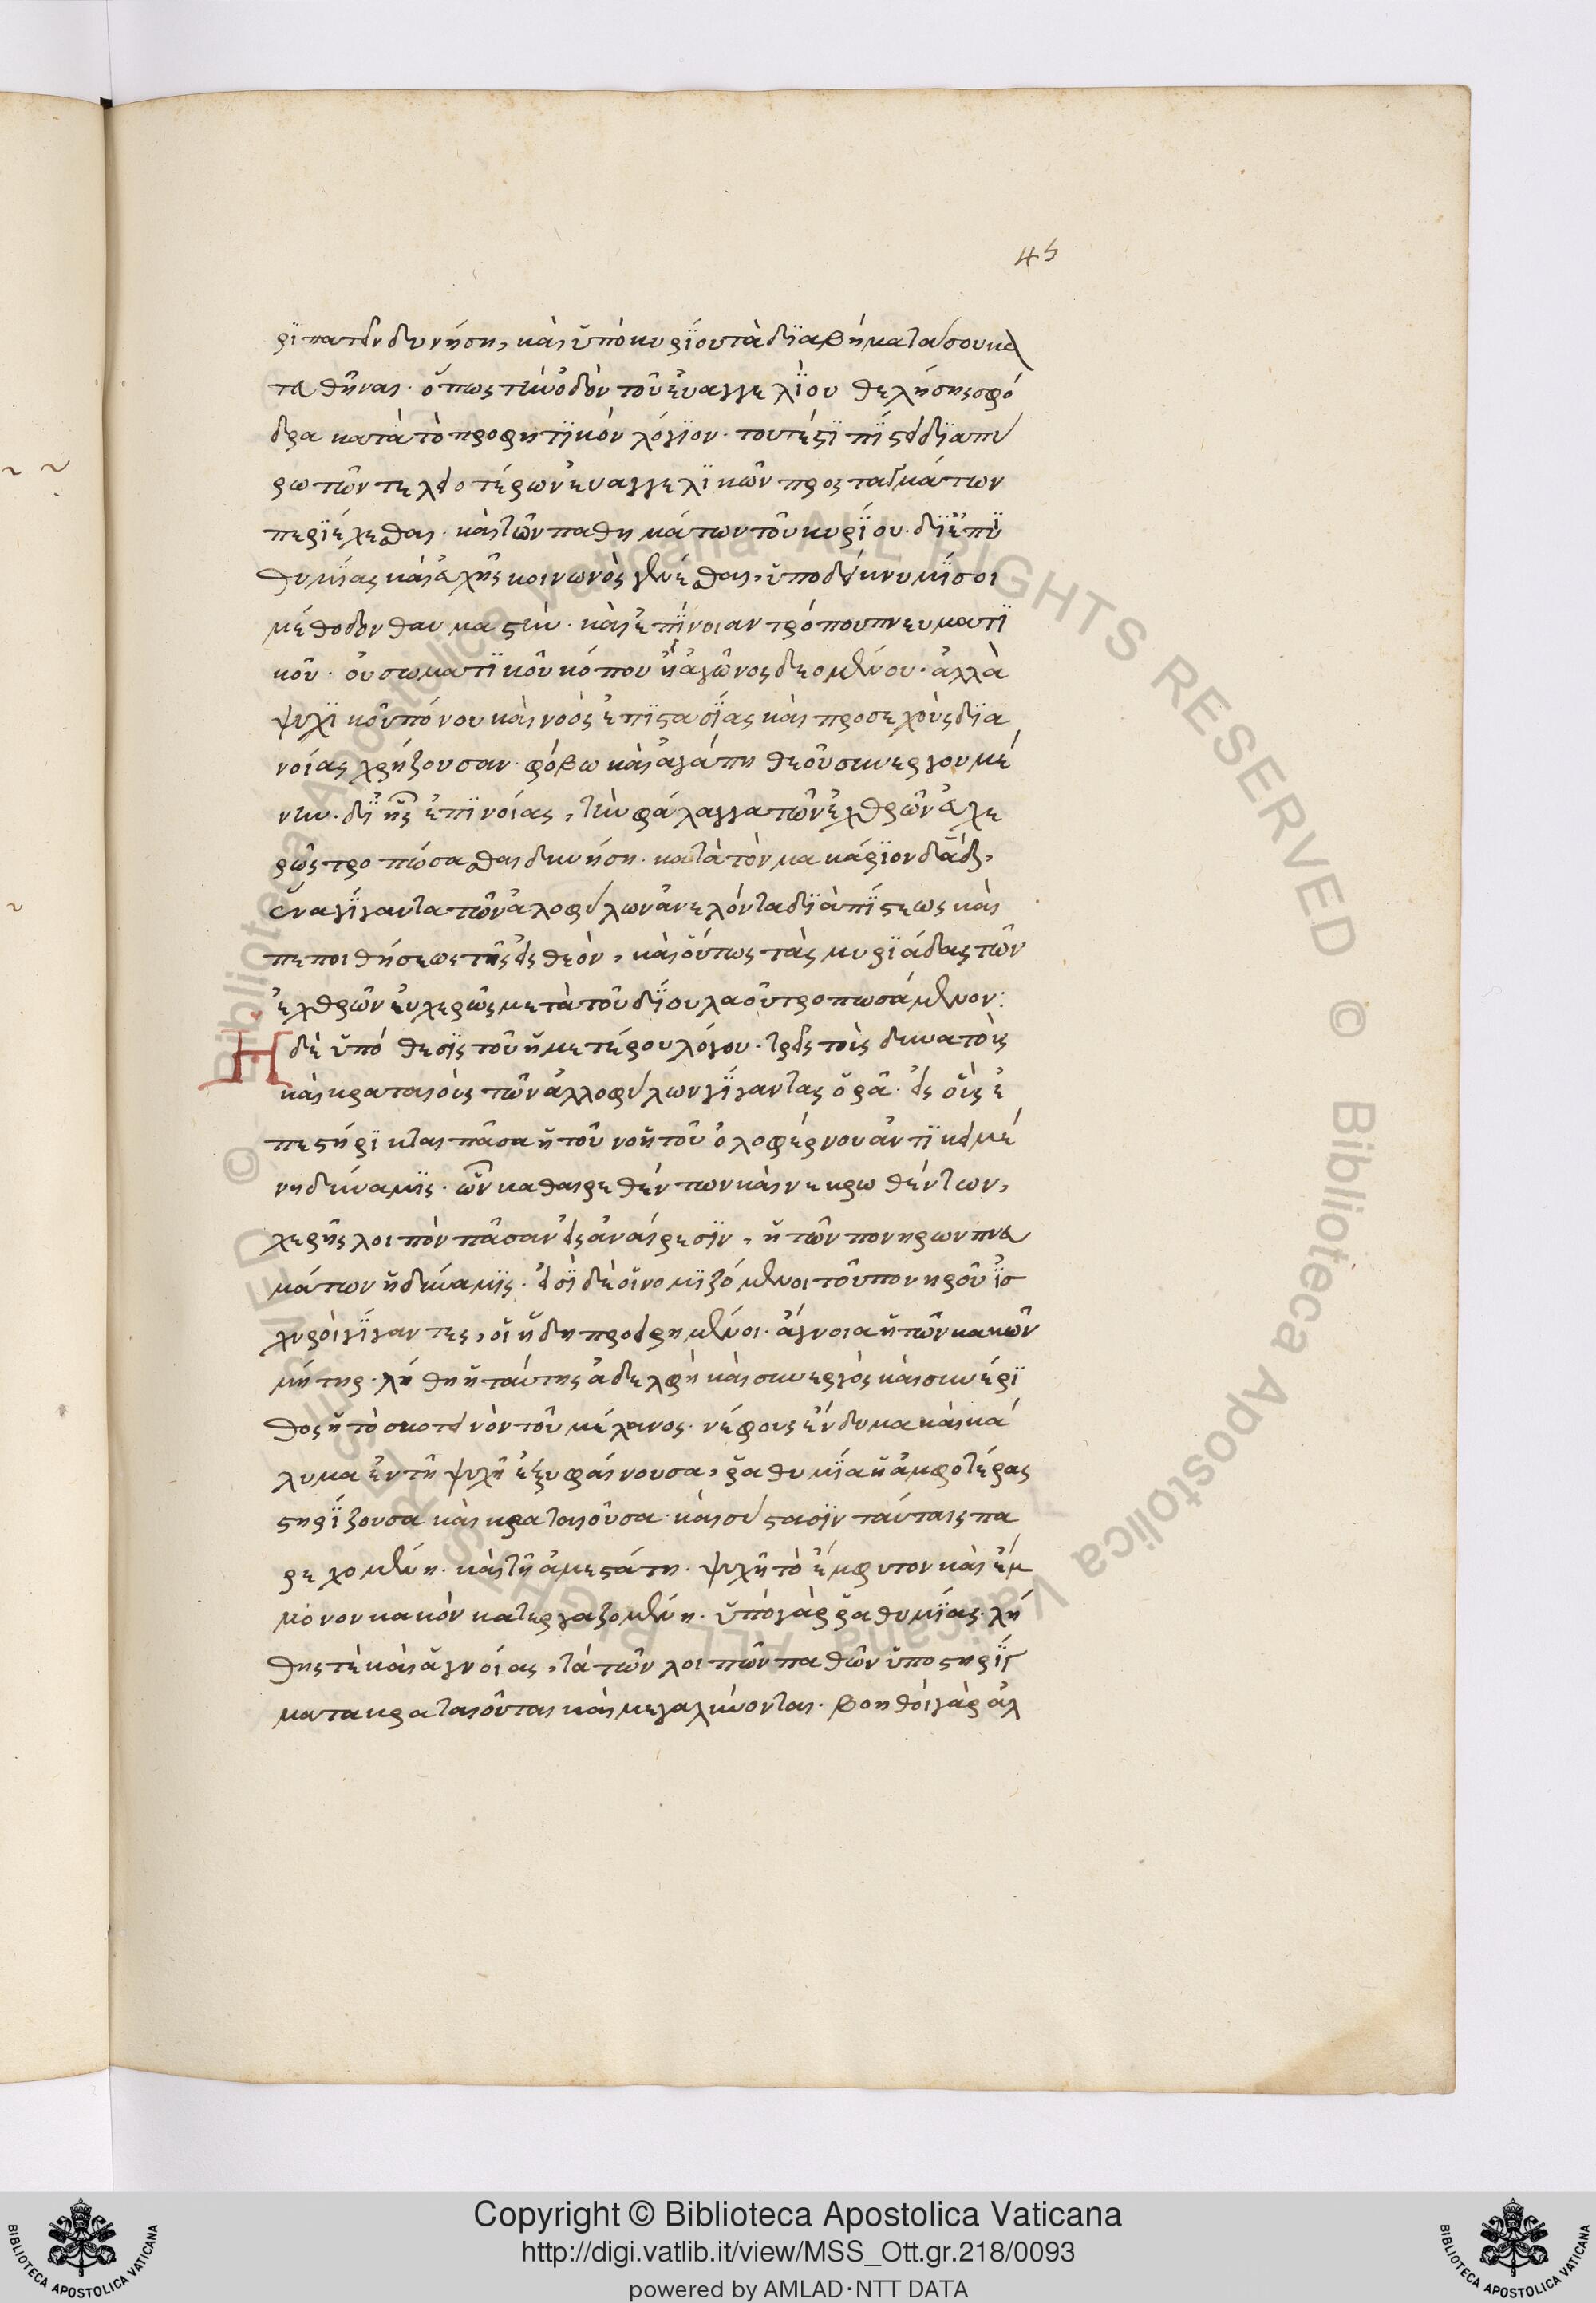 45
ριπατεῖν δυνήση, καὶ ὑπὸ κυρίου τὰ διαβήματα σου κα
τευθῆναι· ὅπως τὴν ὁδὸν τοῦ εὐαγγελίου θελήσης σφό
δρα κατὰ τὸ προφητικὸν λόγιον· τουτέστι πίστει διαπύ
ρω τῶν τελειοτέρων εὐαγγελικῶν προσταγμάτων
περιέχεσθαι· καὶ τῶν παθημάτων τοῦ κυρίου· δι ἐπι
θυμίας καὶ εὐχῆς κοινωνὸς γενέσθαι, ὑποδείκνυμί σοι
μέθοδον θαυμαστὴν· καὶ ἐπίνοιαν τρόπου πνευματι
κοῦ· οὐ σωματικοῦ κόπου ἢ ἀγῶνος δεομένου· ἀλλὰ
ψυχικοῦ πόνου καὶ νοὸς ἐπιστασίας καὶ προσεχοὺς δια
νοίας χρήζουσαν· φόβω καὶ ἀγάπη θεοῦ συνεργουμέ
νην· δι ἧς ἐπινοίας, τὴν φάλαγγα τῶν ἐχθρῶν εὐχε
ρῶς τροπώσασθαι δυνήση· κατὰ τὸν μακάριον δᾱδ,
ἕνα γίγαντα τῶν ἀλοφύλων ἀνελόντα διὰ πίστεως καὶ
πεποιθήσεως τῆς εἰς θεὸν, καὶ οὕπως τὰς μυριάδας τῶν
ἐχθρῶν εὐχερῶς μετὰ τοῦ δίου λαοῦ τροπωσάμενον:
Ἡ δὲ ὑπόθεσις τοῦ ἡμετέρου λόγου· τρεῖς τοὶς δυνατοὶς
καὶ κραταιοὺς τῶν ἀλλοφύλων γίγαντας ὁρᾶ· εἰς οἷς ἐ
πεστήρικται πᾶσα ἡ τοῦ νοητοῦ ὀλοφέρνου ἀντικειμέ
νη δύναμις· ὧν καθαιρεθέντων καὶ νεκρωθέντων,
χερῆς λοιπὸν πᾶσαν εἰς ἀναίρεσιν, ἡ τῶν πονηρων πνευ
μάτων ἡ δύναμις· εἰσὶ δὲ οἱ νομιζόμενοι τοῦ πονηροῦ ἰσ
χυροὶ γίγαντες, οἱ ἤδη προειρημένοι· ἄγνοια ἡ τῶν κακῶν
μήτηρ· λήθη ἡ ταύτης ἀδελφὴ καὶ συνεργὸς καὶ συνέρι
θος ἡ τὸ σκοτεινὸν τοῦ μέλανος· νέφους ἔνδυμα καὶ κά
λυμα ἐν τῆ ψυχῆ ἐξυφαίνουσα, ῥαθυμία ἡ ἀμφοτέρας
στηρίζουσα καὶ κραταιοῦσα· καὶ σύστασιν ταύταις πα
ρεχομένη· καὶ τῆ ἀμεστάτη· ψυχῆ τὸ ἔμφυτον καὶ ἔμ
μονον κακὸν κατεργαζομένη· ὑπὸ γὰρ ῥαθυμίας· λή
θης τὲ καὶ ἀγνοίας, τὰ τῶν λοιπῶν παθῶν ὑποστηρίγ
ματα κραταιοῦται καὶ μεγαλύνονται· βοηθοὶ γὰρ ἀλ
Copyright © Biblioteca Apostolica Vaticana
http://digi.vatlib.it/view/MSS_Ott.gr.218/0093
powered by AMLAD·NTT DATA
BIBLIOTECA APOSTOLICA VATICANA
BIBLIOTECA APOSTOLICA VATICANA
© Biblioteca Apostolica Vaticana ALL RIGHTS RESERVED
© Biblioteca Apostolica Vaticana ALL RIGHTS RESERVED